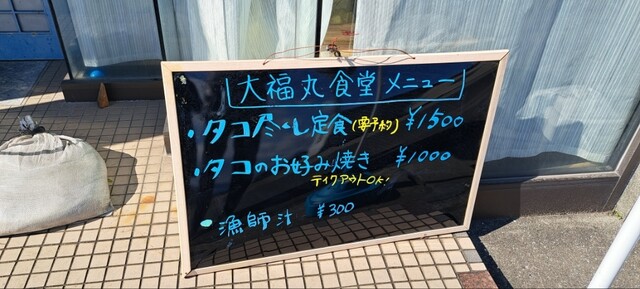 大福丸食堂 メニュー
・タコ尽くし定食(要予約) ¥1500
・タコのお好み焼き ¥1000
テイクアウトOK!
・漁師汁 ¥300